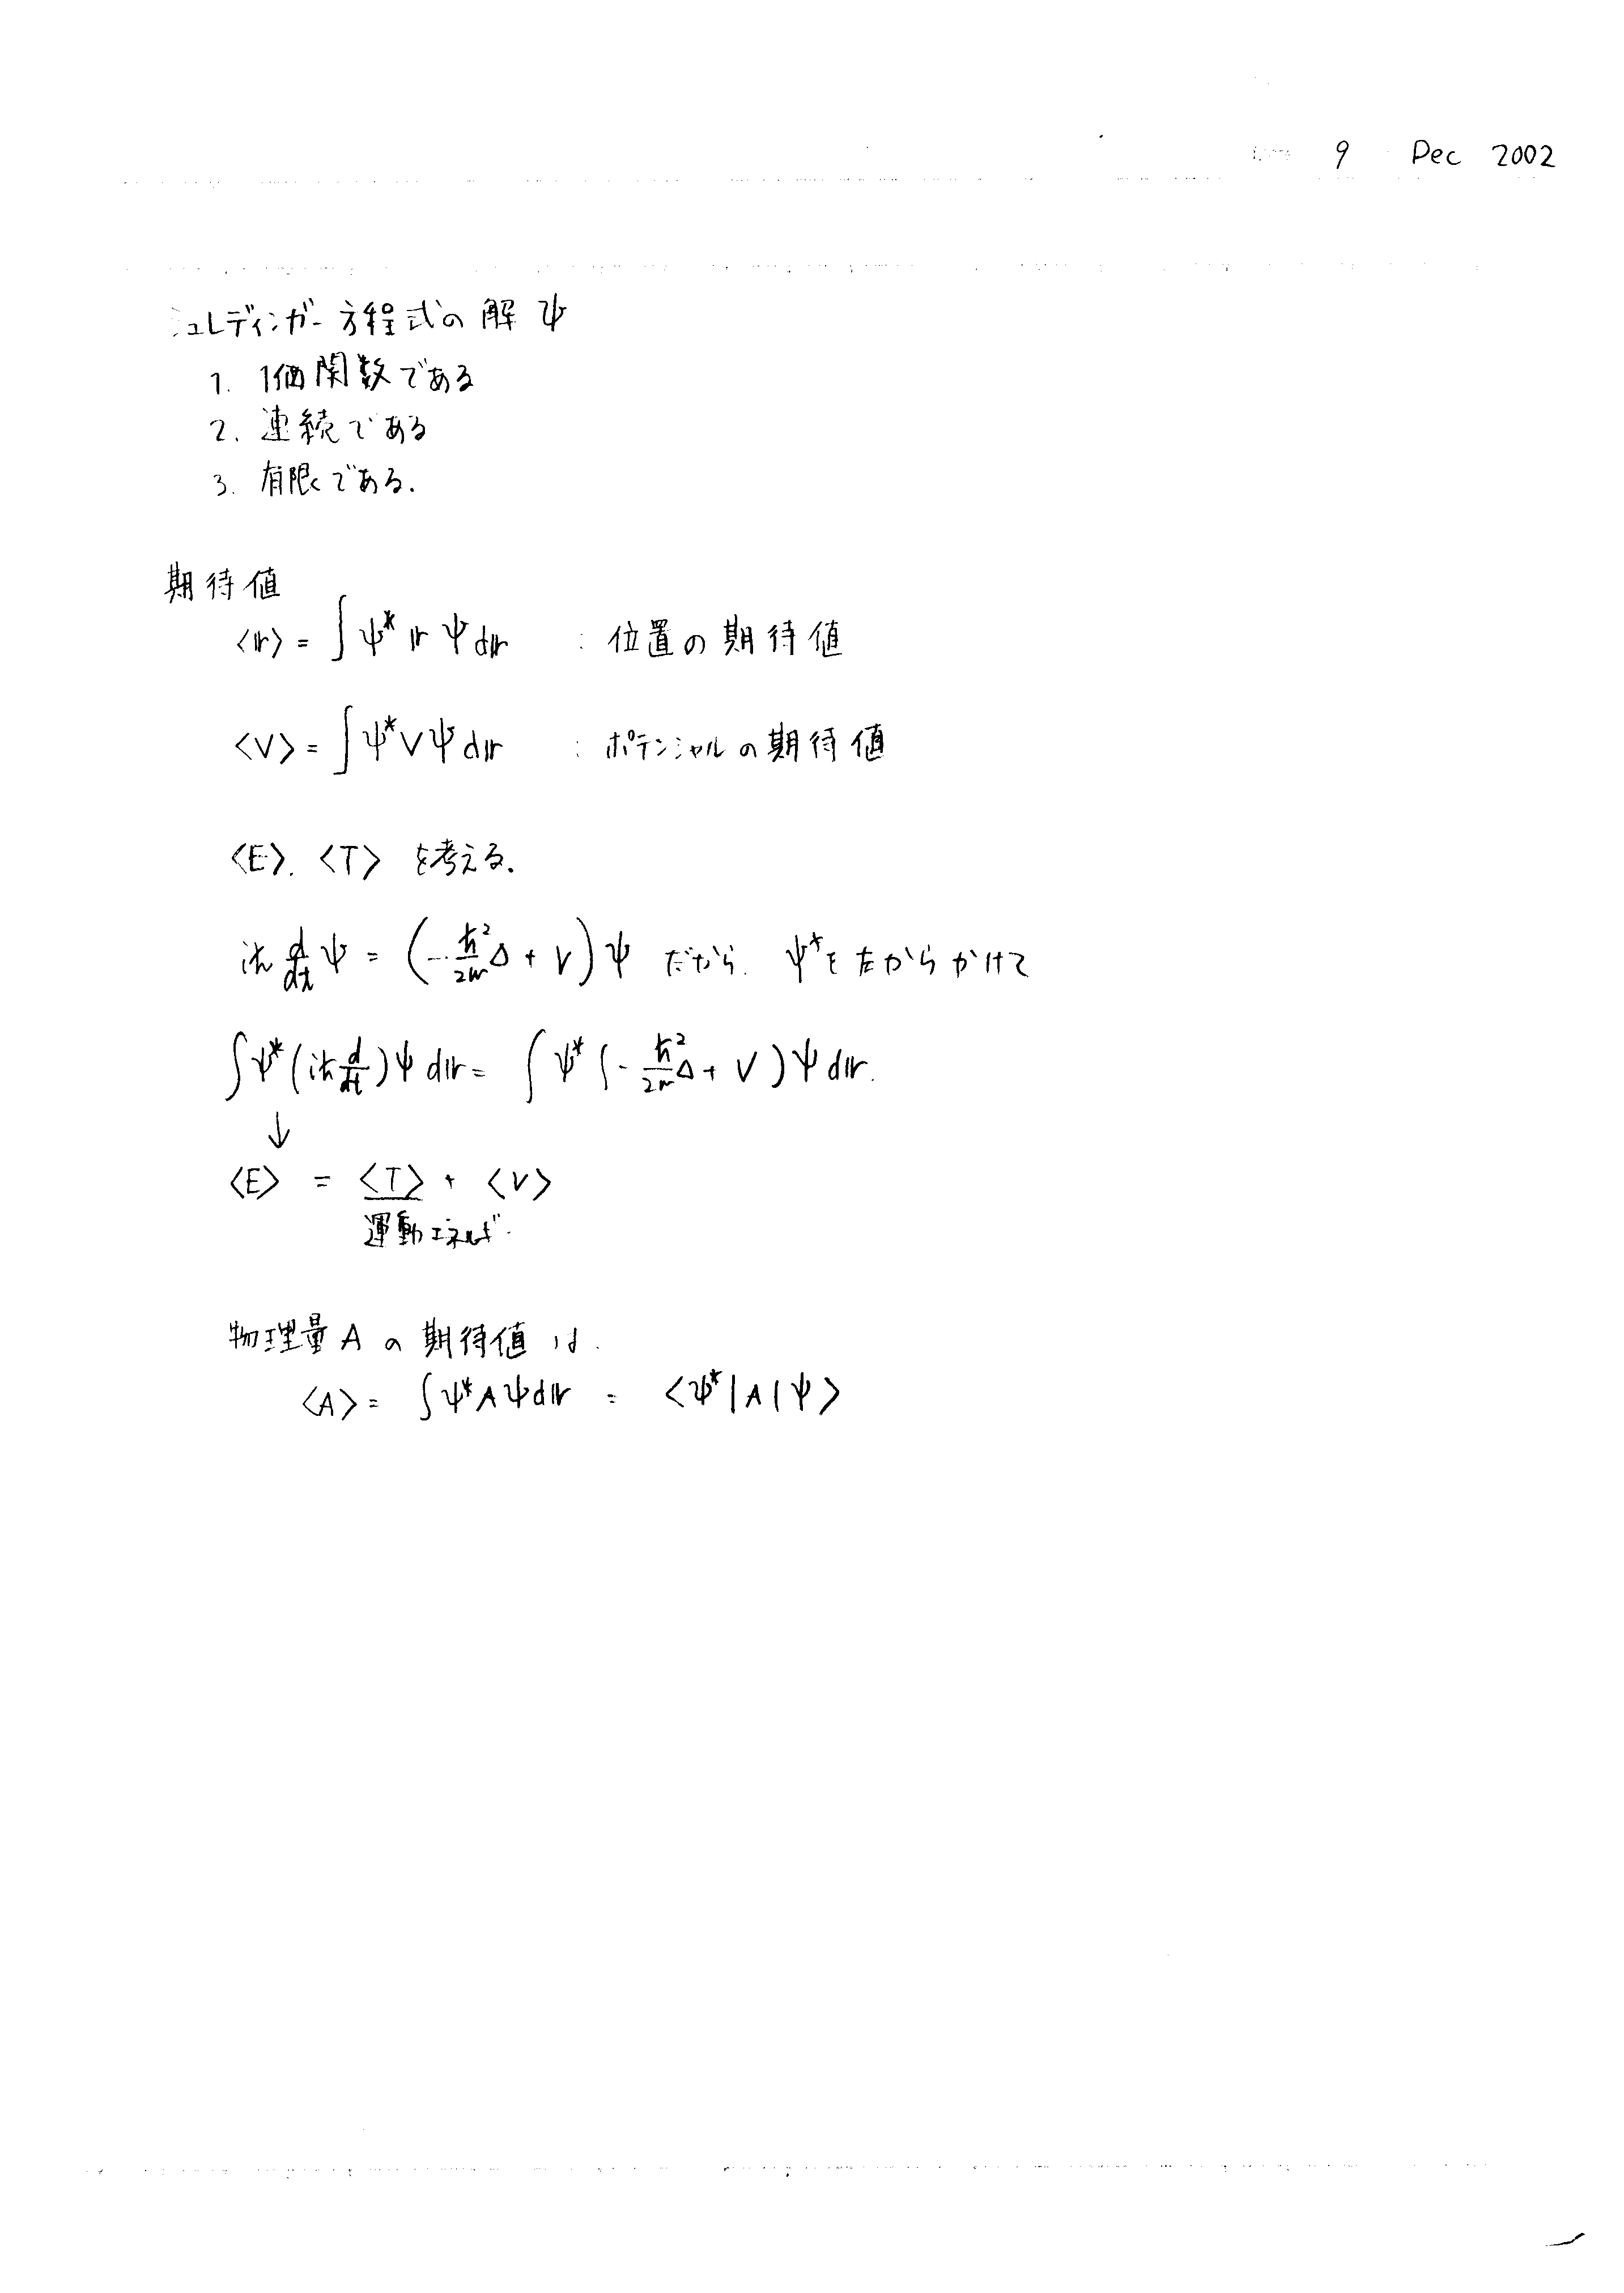 9 Dec 2002
シュレディンガー方程式の解 ψ
1. 1価関数である
2. 連続である
3. 有限である.
期待値
⟨𝕣⟩ = ∫ψ* 𝕣 ψ d𝕣 : 位置の期待値
⟨V⟩ = ∫ψ* V ψ d𝕣 : ポテンシャルの期待値
⟨E⟩. ⟨T⟩ を考える.
iħ d/dt ψ = (-ħ²/2m Δ + V) ψ だから. ψ*を左からかけて
∫ψ*(iħ d/dt)ψ d𝕣 = ∫ψ*(-ħ²/2m Δ + V)ψ d𝕣.
↓
⟨E⟩ = ⟨T⟩ + ⟨V⟩
運動エネルギー
物理量 A の期待値は.
⟨A⟩ = ∫ψ*Aψ d𝕣 = ⟨ψ*|A|ψ⟩